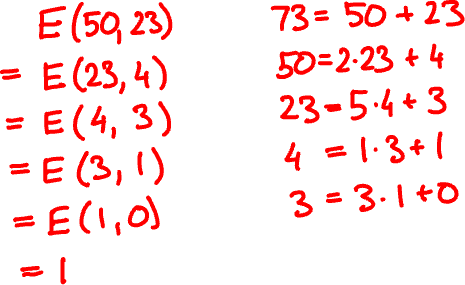 E(50,23)
= E(23,4)
= E(4, 3)
= E(3, 1)
= E(1,0)
= 1
73= 50 + 23
50=2·23 + 4
23=5·4+ 3
4 = 1·3+1
3 = 3·1+0